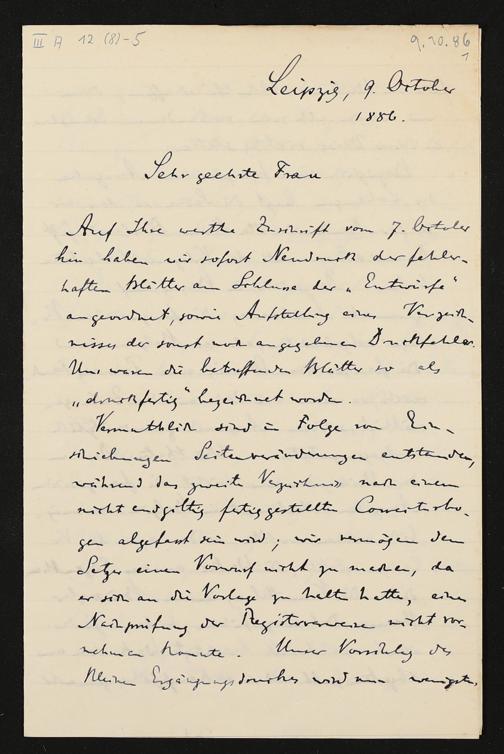 III A 12 (8)-5
9.10.86
1
Leipzig, 9. October
1886.
Sehr geehrte Frau
Auf Ihre werthe Zuschrift vom 7. October
hin haben wir sofort Neudruck der fehler-
haften Blätter am Schlusse der „Entwürfe"
angeordnet, sowie Aufstellung eines Verzeich-
nisses der sonst noch angegebenen Druckfehler.
Uns waren die betreffenden Blätter so als
„druckfertig" bezeichnet worden.
Vermuthlich sind in Folge von Ein-
schiebungen Seitenveränderungen entstanden,
während das zweite Verzeichnis nach einem
nicht endgiltig fertiggestellten Correcturbo-
gen abgefasst sein wird; wir vermögen dem
Setzer einen Vorwurf nicht zu machen, da
er sich an die Vorlage zu halten hatte, eine
Nachprüfung der Registerverweise nicht vor-
nehmen konnte. Unser Vorschlag des
kleinen Ergänzungsdruckes wird nun wenigstens